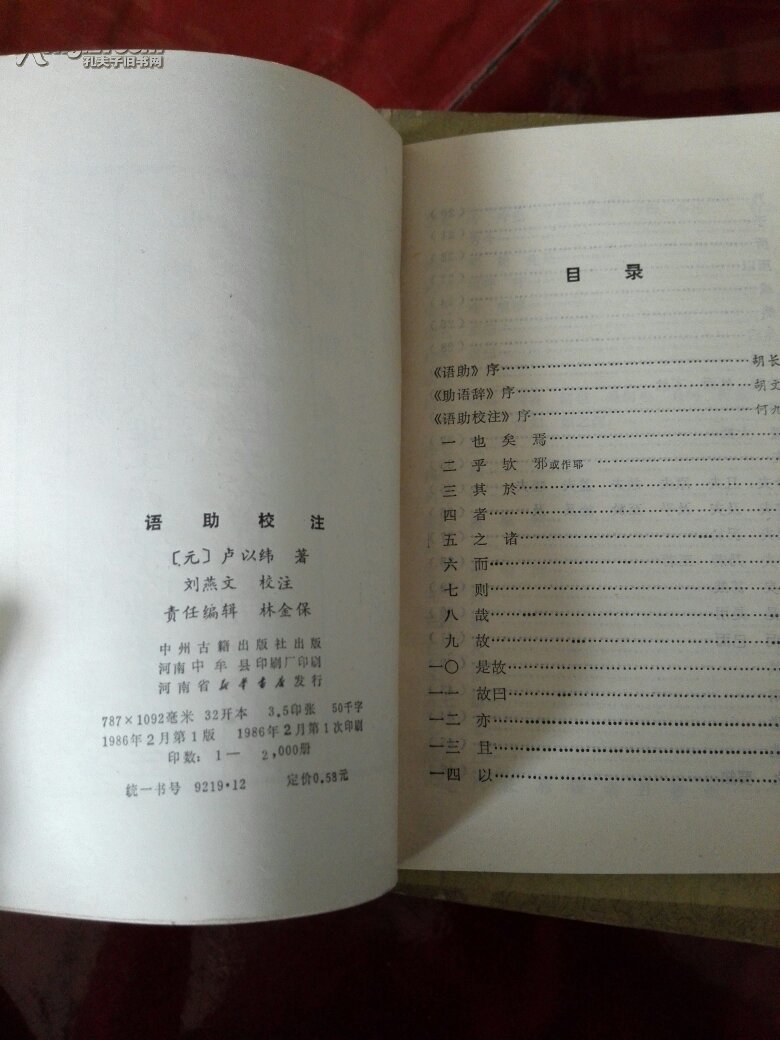 孔夫子旧书网
语助校注
〔元〕卢以纬 著
刘燕文 校注
责任编辑 林金保
中州古籍出版社出版
河南中牟县印刷厂印刷
河南省新华书店发行
787×1092毫米 32开本 3.5印张 50千字
1986年2月第1版 1986年2月第1次印刷
印数：1—2,000册
统一书号 9219·12 定价0.58元
目录
《语助》序……胡长
《助语辞》序……胡文
《语助校注》序……何九
一 也 矣 焉……
二 乎 欤 邪或作耶……
三 其 於……
四 者……
五 之 诸……
六 而……
七 则……
八 哉……
九 故……
一〇 是故……
一一 故曰……
一二 亦……
一三 且……
一四 以……